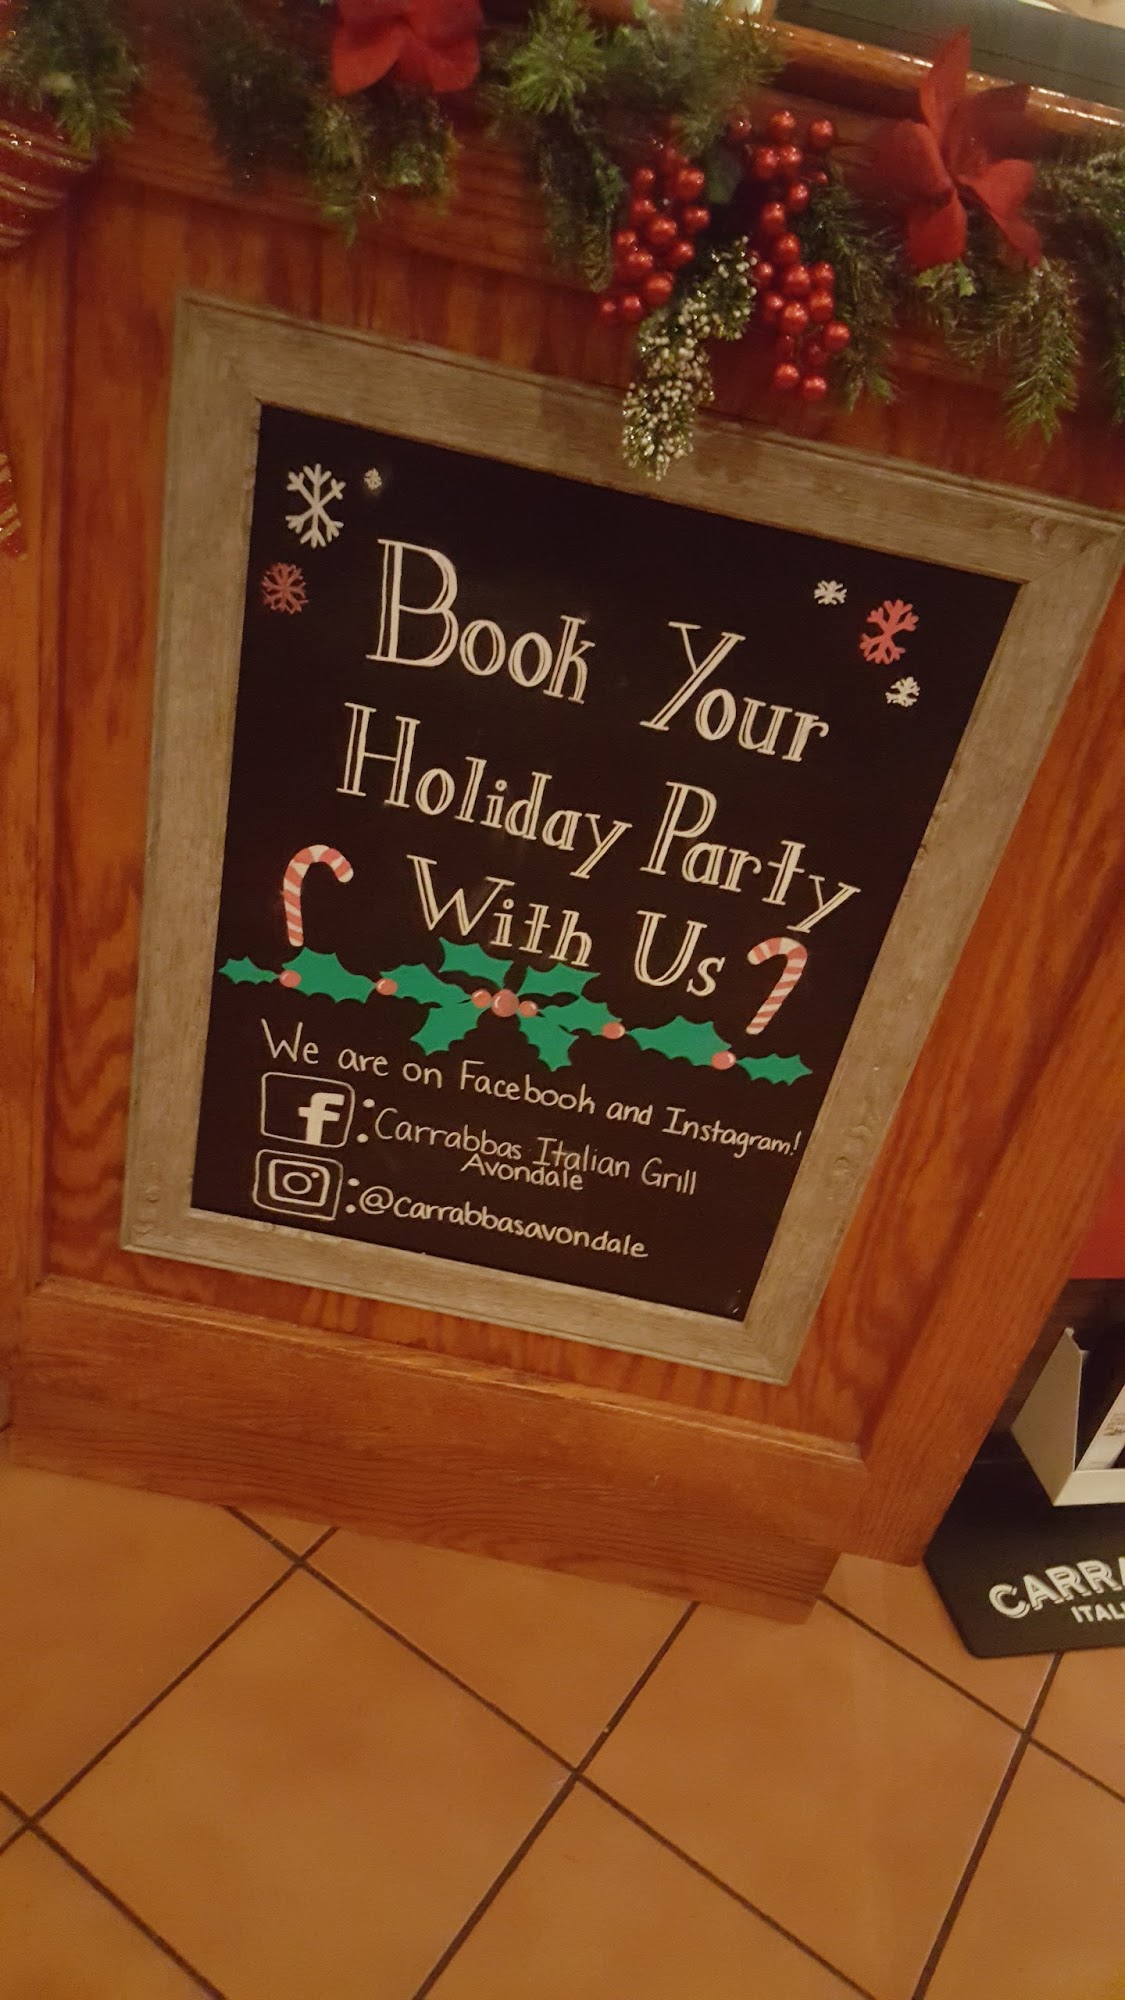 Book Your
Holiday Party
With Us
We are on Facebook and Instagram!
f:Carrabbas Italian Grill
Avondale
:@carrabbasavondale